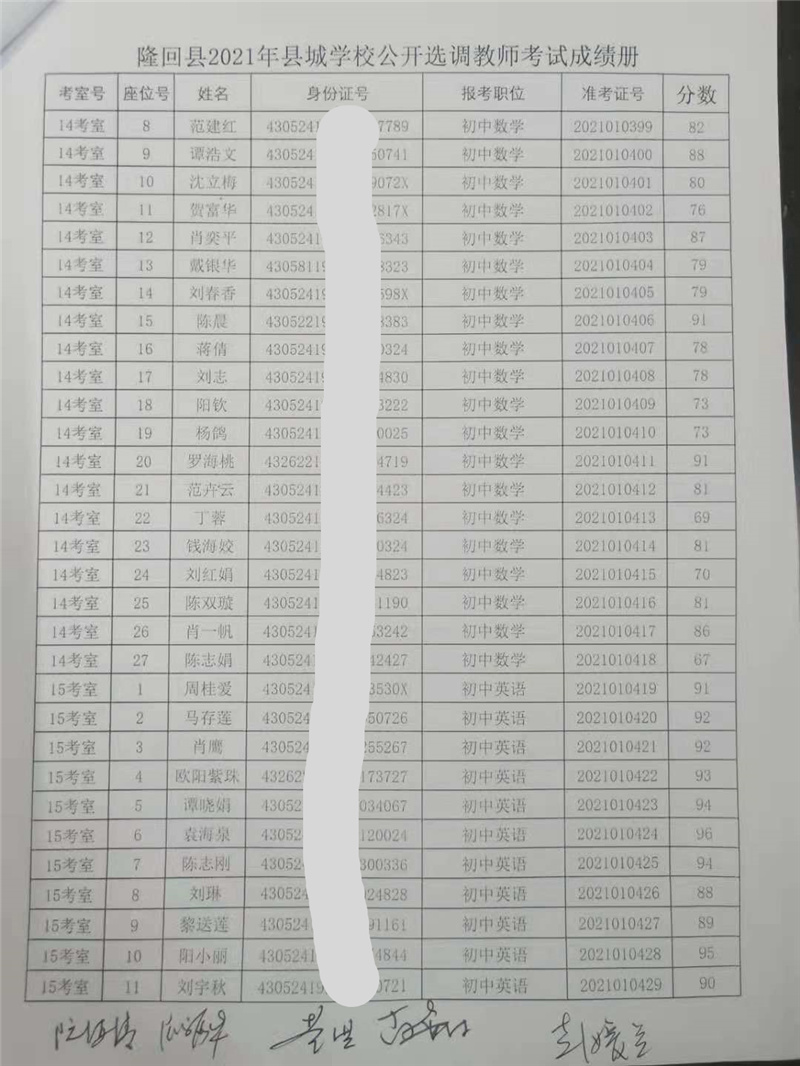 隆回县2021年县城学校公开选调教师考试成绩册
考室号 座位号 姓名 身份证号 报考职位 准考证号 分数
14考室 8 范建红 4305241 7789 初中数学 2021010399 82
14考室 9 谭浩文 430524 60741 初中数学 2021010400 88
14考室 10 沈立梅 430524 9072X 初中数学 2021010401 80
14考室 11 贺富华 430524 2817X 初中数学 2021010402 76
14考室 12 肖奕平 4305241 6343 初中数学 2021010403 87
14考室 13 戴银华 43058119 3323 初中数学 2021010404 79
14考室 14 刘春香 43052419 698X 初中数学 2021010405 79
14考室 15 陈晨 43052219 3383 初中数学 2021010406 91
14考室 16 蒋倩 43052419 0324 初中数学 2021010407 78
14考室 17 刘志 43052419 4830 初中数学 2021010408 78
14考室 18 阳钦 4305241 3222 初中数学 2021010409 73
14考室 19 杨鸽 4305241 0025 初中数学 2021010410 73
14考室 20 罗海桃 4326221 4719 初中数学 2021010411 91
14考室 21 范卉云 4305241 4423 初中数学 2021010412 81
14考室 22 丁蓉 4305241 6324 初中数学 2021010413 69
14考室 23 钱海姣 4305241 0324 初中数学 2021010414 81
14考室 24 刘红娟 4305241 4823 初中数学 2021010415 70
14考室 25 陈双璇 4305241 1190 初中数学 2021010416 81
14考室 26 肖一帆 430524 3242 初中数学 2021010417 86
14考室 27 陈志娟 430524 42427 初中数学 2021010418 67
15考室 1 周桂爱 430524 3530X 初中英语 2021010419 91
15考室 2 马存莲 430524 50726 初中英语 2021010420 92
15考室 3 肖鹰 430524 255267 初中英语 2021010421 92
15考室 4 欧阳紫珠 432622 173727 初中英语 2021010422 93
15考室 5 谭晓娟 43052 034067 初中英语 2021010423 94
15考室 6 袁海泉 43052 120024 初中英语 2021010424 96
15考室 7 陈志刚 43052 300336 初中英语 2021010425 94
15考室 8 刘琳 43052 24828 初中英语 2021010426 88
15考室 9 黎送莲 430524 91161 初中英语 2021010427 89
15考室 10 阳小丽 4305241 4844 初中英语 2021010428 95
15考室 11 刘宇秋 43052419 0721 初中英语 2021010429 90